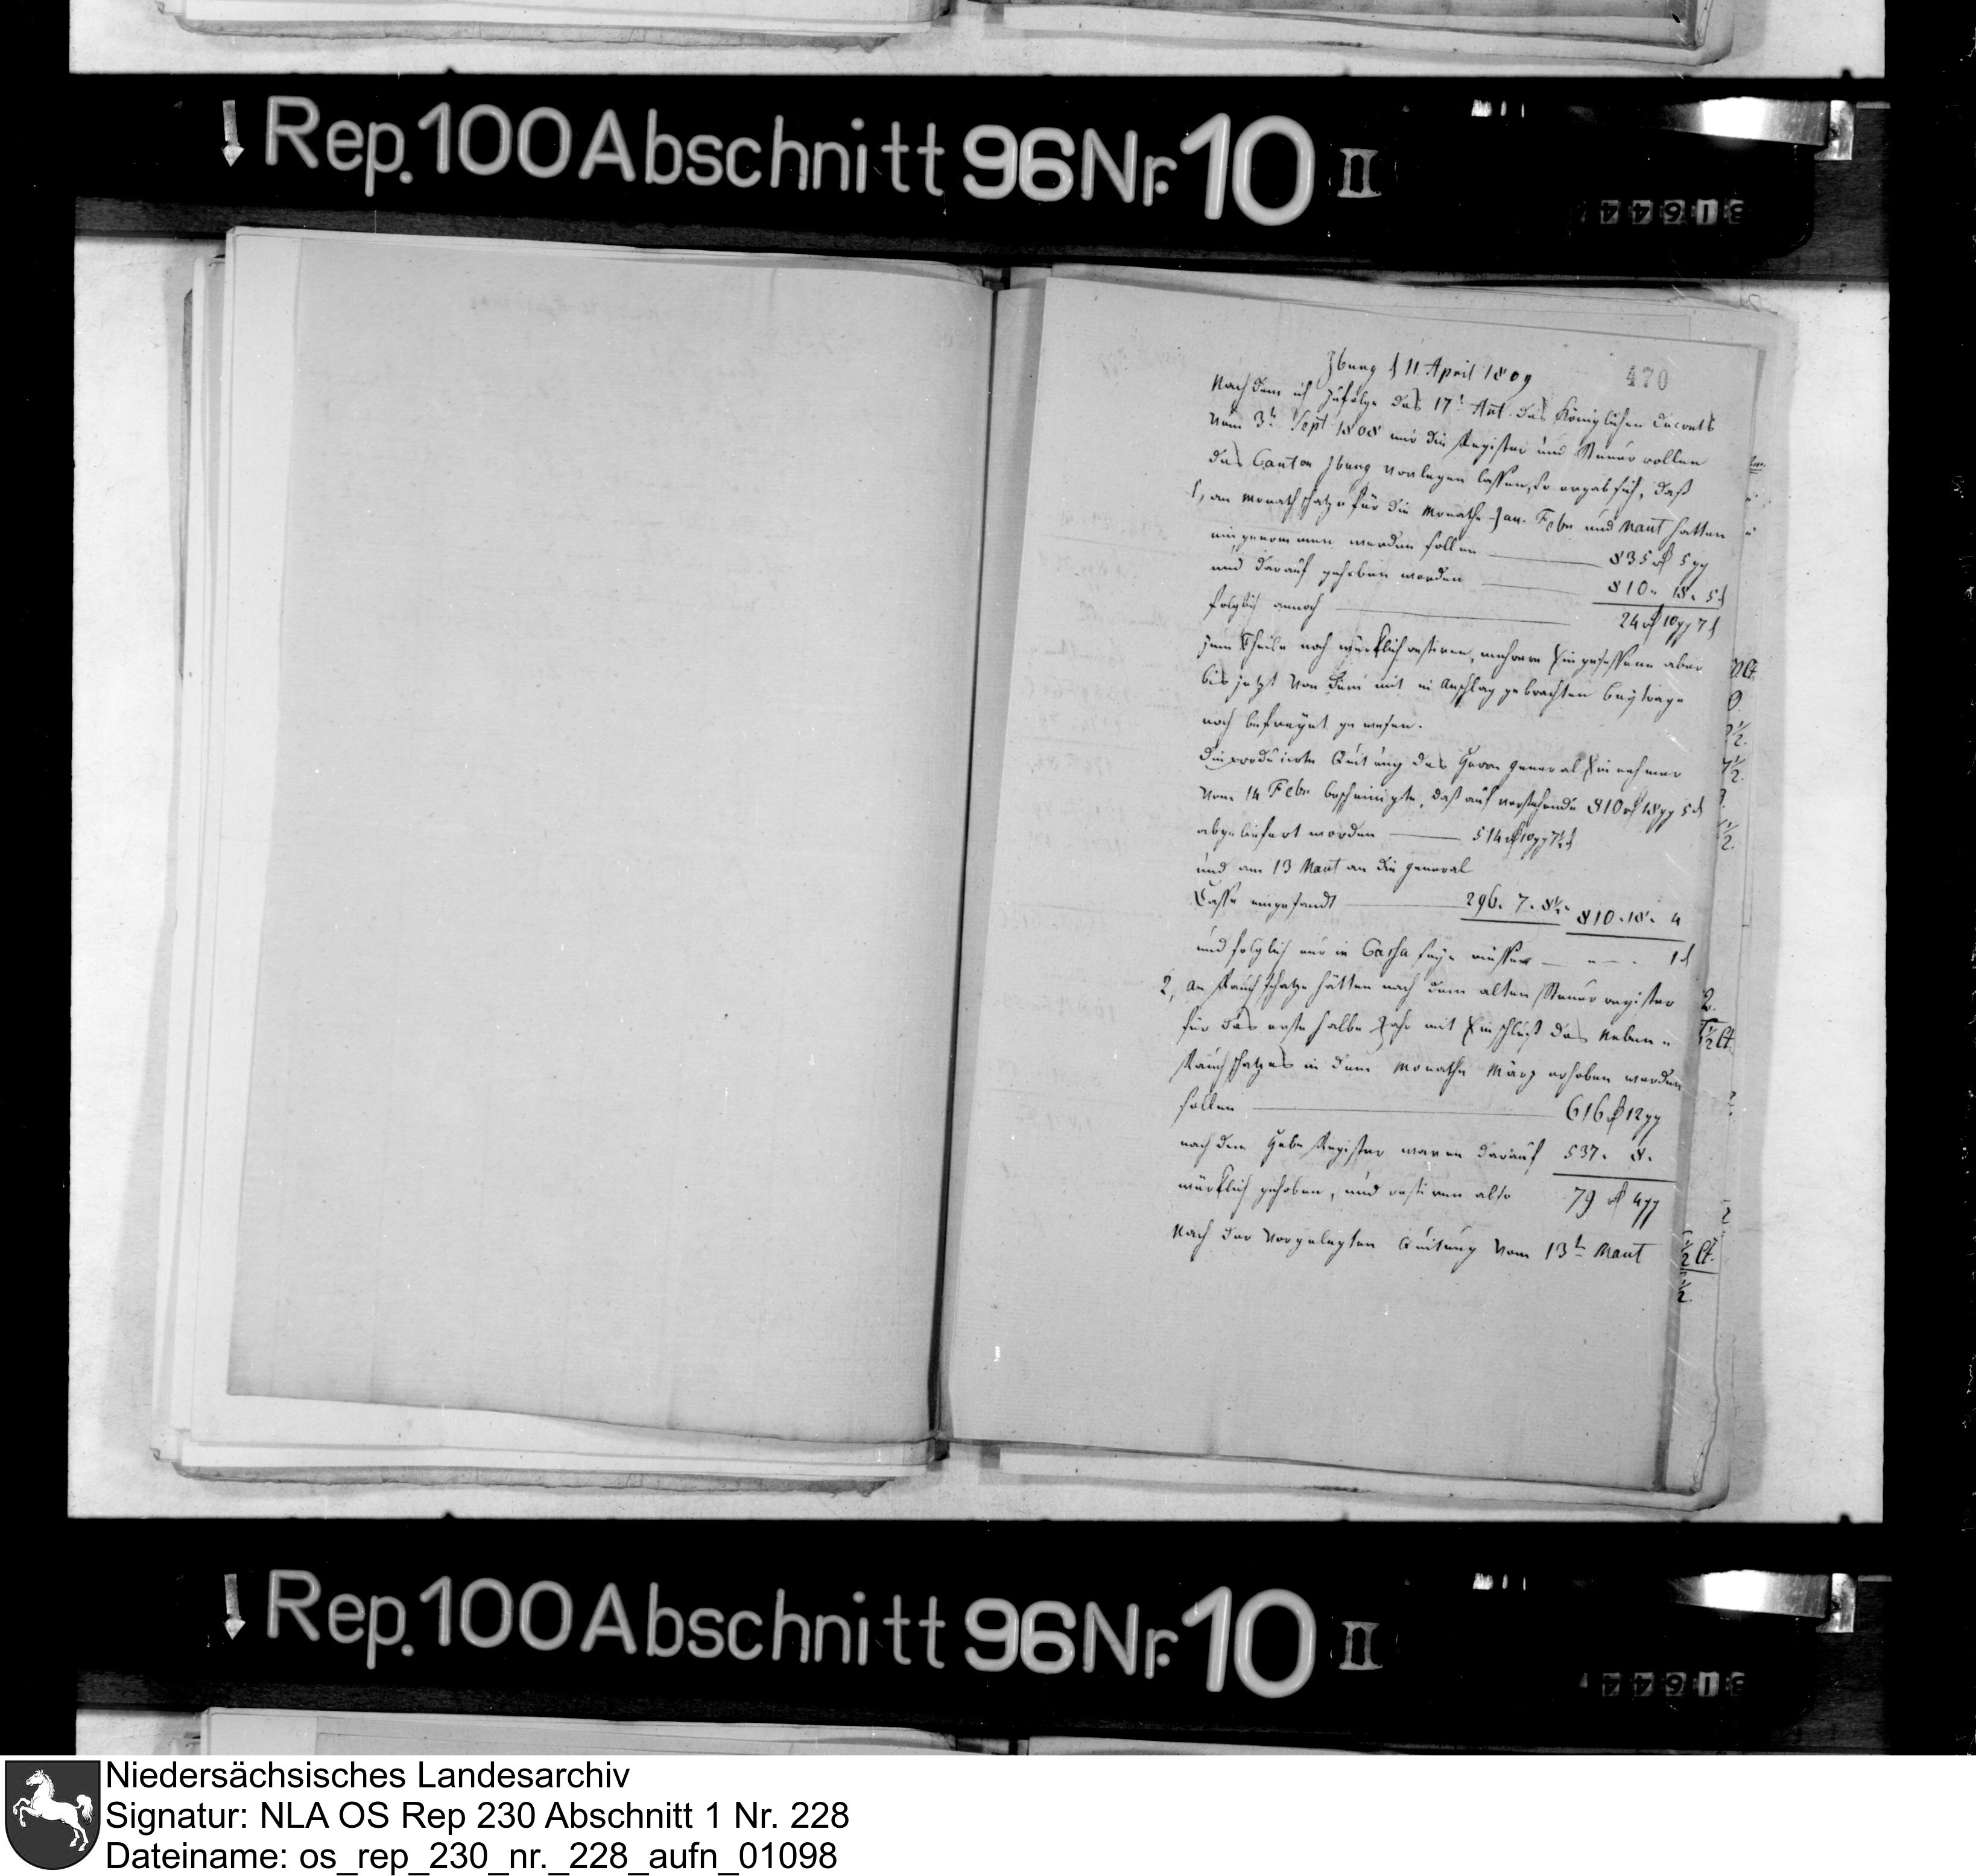 Rep. 100 Abschnitt 96 Nr. 10 II
31644
470
Iburg d 11 April 1809
Nachdem ich zufolge des 17t Art. des Königlichen Decrets
vom 3t Sept 1808 mir die Register und Steuerrollen
des Canton Iburg vorlegen lassen, so ergab sich, daß
1, an Monathschatze für die Monathe Jan. Febr und Maert hatten
eingenommen werden sollen 835 rt 5 gg
und darauf gehoben worden 810 " 18 " 5 d
folglich annoch 24 rt 10 gg 7 d
zum Theile noch würklich restiren, mehrere Eingesessene aber
bis jetzt von dem mit in Anschlag gebrachten Beytrage
noch befreyet gewesen.
Die producirte Quitung des Herrn General Einnehmer
vom 14 Febr bescheinigte, daß auf vorstehende 810 rt 18 gg 5 d
abgeliefert worden 514 rt 10 gg 7½ d
und am 13 Maert an die General
Casse eingesandt 296. 7. 8½. 810. 18. 4
und folglich nur in Cassa seyn müssen 1 d
2, an Rauchschatze hätten nach dem alten Steuerregister
für das erste halbe Jahr mit Einschluß des Neben-
Rauchschatzes in dem Monathe März erhoben werden
sollen 616 rt 12 gg
nach dem Hebe Register waren darauf 537. 8.
würklich gehoben, und restiren also 79 rt 4 gg
Nach der vorgelegten Quitung vom 13t Maert
Rep. 100 Abschnitt 96 Nr. 10 II
31644
Niedersächsisches Landesarchiv
Signatur: NLA OS Rep 230 Abschnitt 1 Nr. 228
Dateiname: os_rep_230_nr._228_aufn_01098